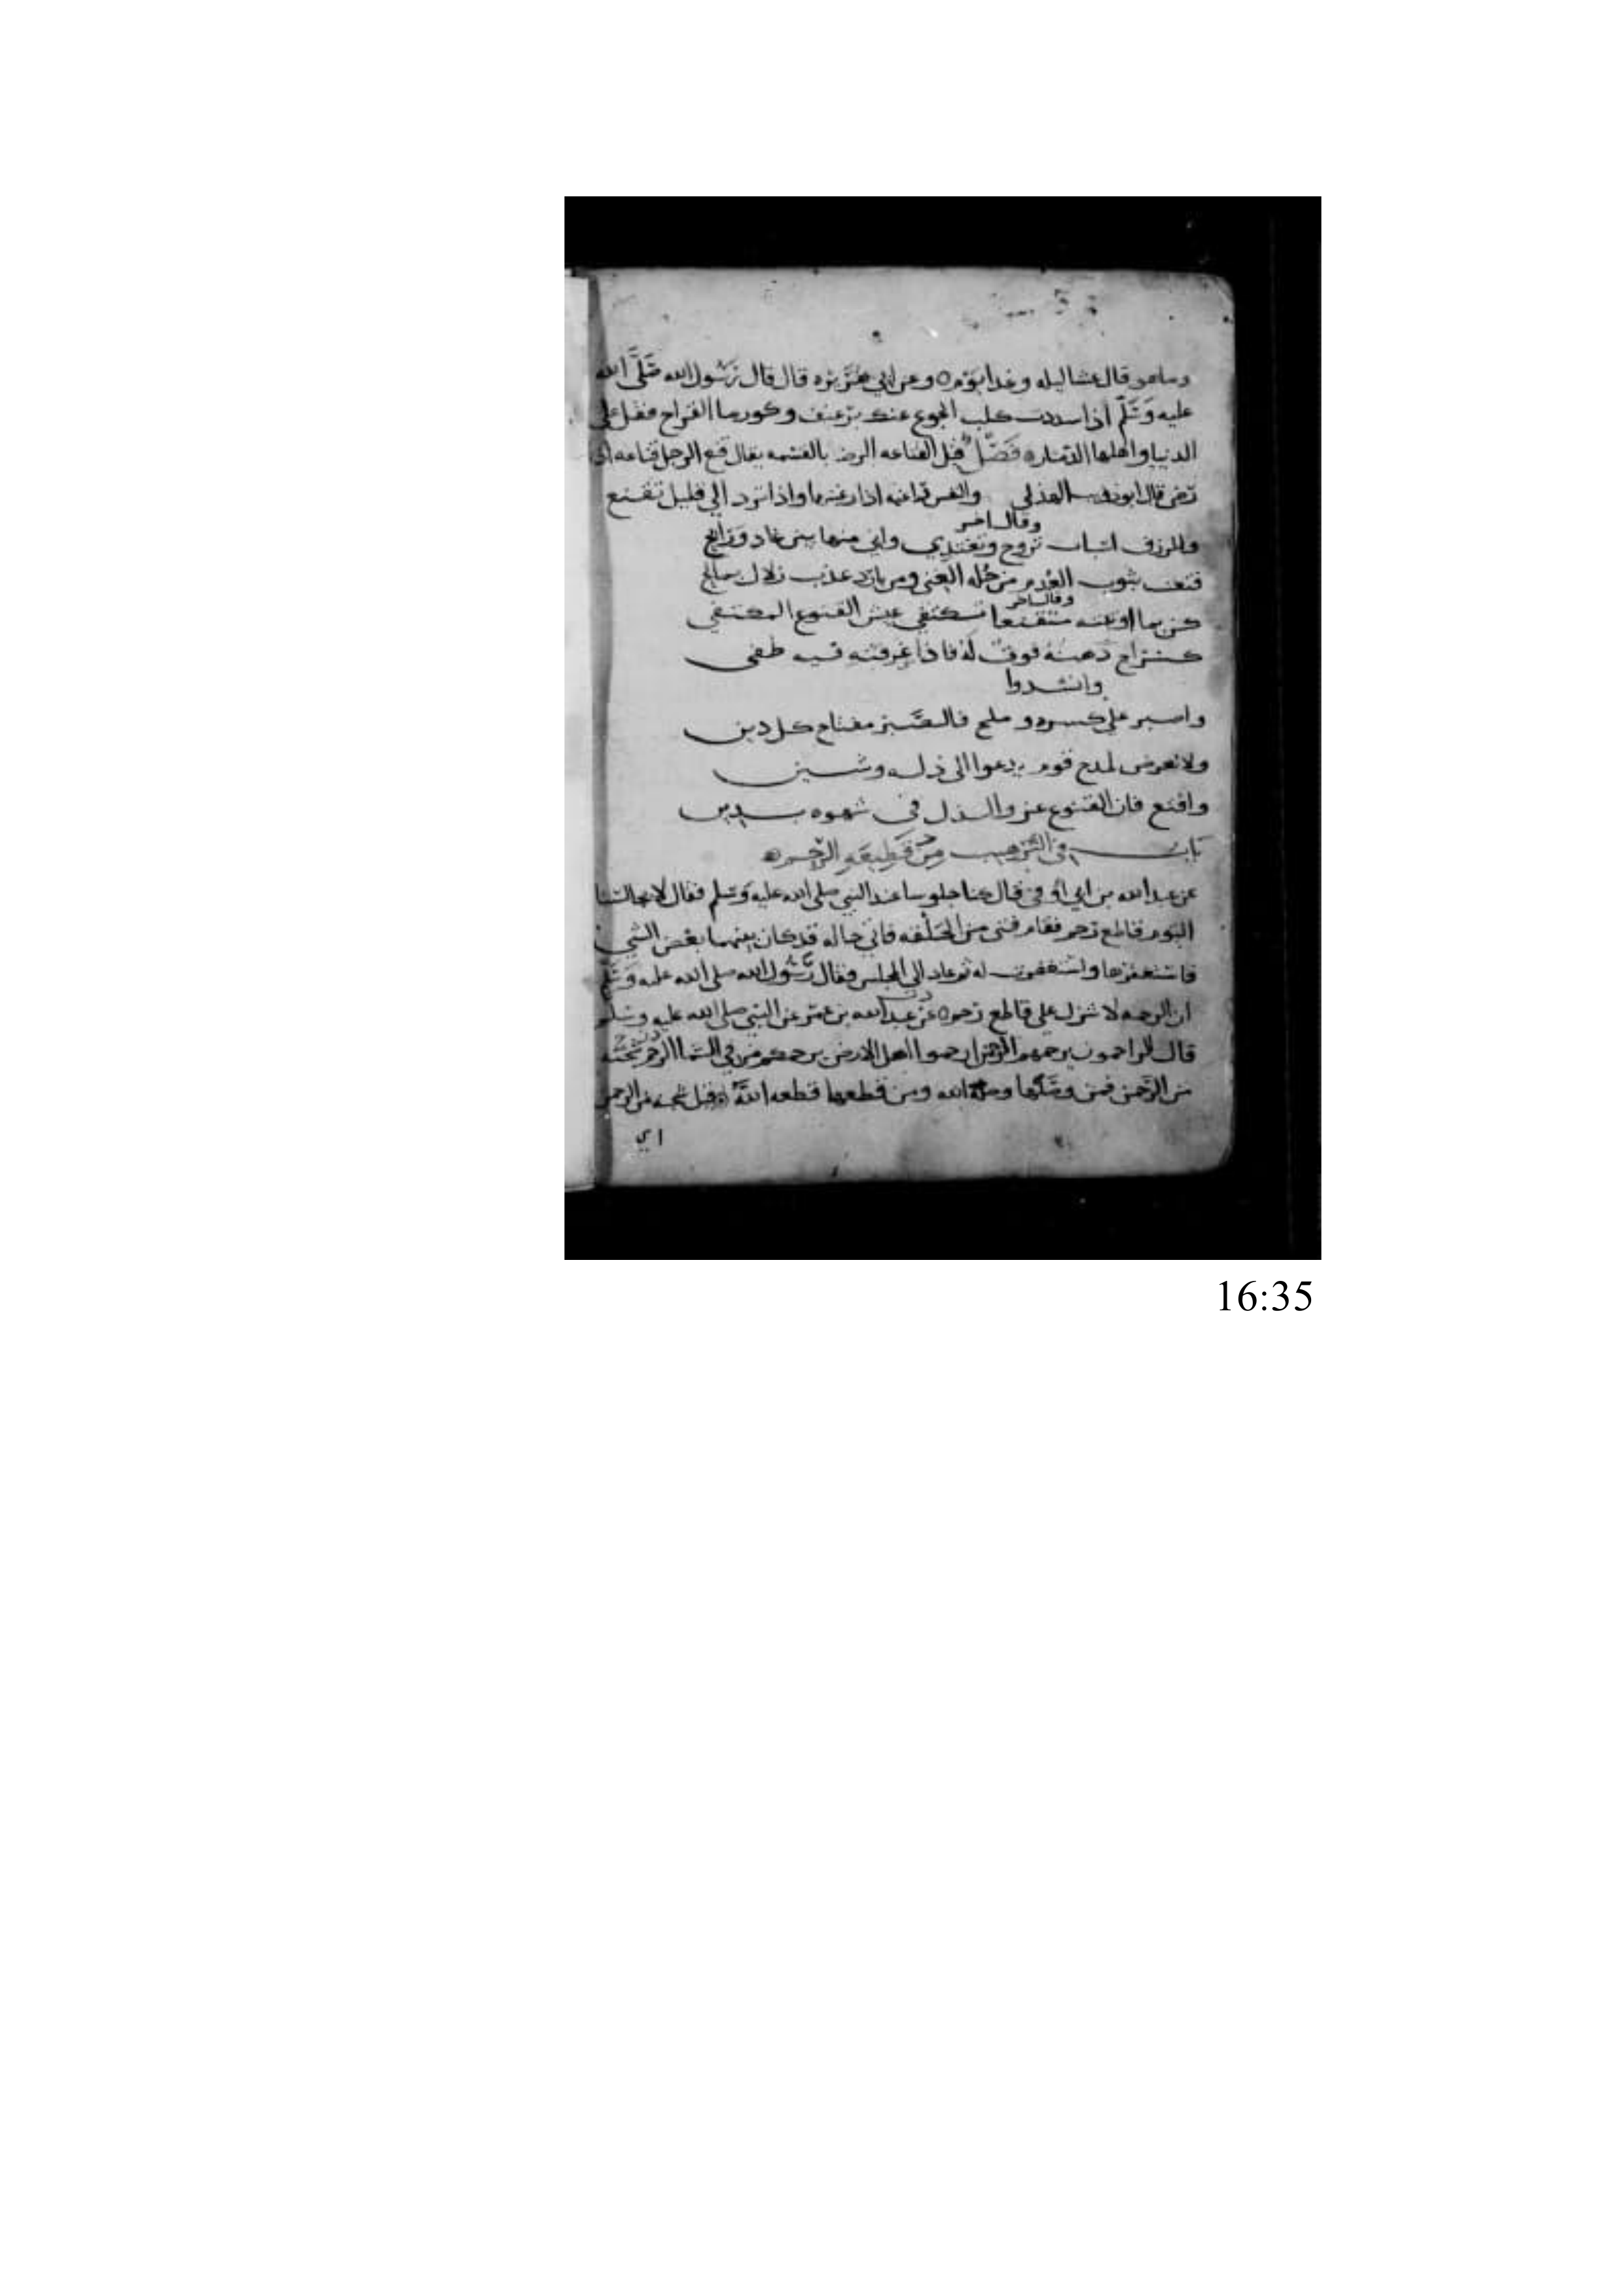 وما هو قال عشا ليله وغدا يوم ٥ وعن ابي هريره قال قال رسول الله صَلَّى الله
عليه وسَلَّم اذا سددت كلب الجوع عنك برغيف وكوز ما القراح فقل على
الدنيا واهلها الدمار ٥ فَصْلٌ قيل القناعه الرضا بالقسمه يقال قنع الرجل قناعه اذا
رضى قال ابو ذويب الهذلي والنفس راغبه اذا رغبتها واذا ترد الي قليل تقنع
وقال اخر
وللرزق اسباب تروح وتغتدي واني منها بين غاد ورايح
قنعت بثوب العُدم من حُله الغنى ومن بارد عذب زلال بمالح
وقال اخر
كن بما اوتيته مقتنعا تستكفي عيش القنوع المكتفي
كسراج دهنه قوت له فاذا غرقته فيه طفي
وانشدوا
واصبر على كسره وملح فالصَّبر مفتاح كل دين
ولا تعرض لمدح قوم يدعوا الى ذله وشين
واقنع فان القنوع عز والذل في شهوه بدين
باب في الترهيب من قطيعه الرحم ٥
عن عبد الله بن ابي أوفى قال كنا جلوسا عند النبي صلى الله عليه وسلم فقال لا يجالسنا
اليوم قاطع رحم فقام فتى من الحَلْقه فاتى خاله قد كان بينهما بعض الشي
فاستغفر لها واستغفرت له ثم عاد الي المجلس فقال رسُول الله صلى الله عليه وسَلَّم
ان الرحمه لا تنزل على قاطع رحم ٥ عن عبد الله بن عمر عن النبي صلى الله عليه وسلم
قال الراحمون يرحمهم الرحمن ارحموا اهل الارض يرحمكم من في السَّما الرحم شجنه
من الرَّحمن فمن وصَلَها وصله الله ومن قطعها قطعه الله ٥ قيل شجنه من الرحمن
اي
16:35